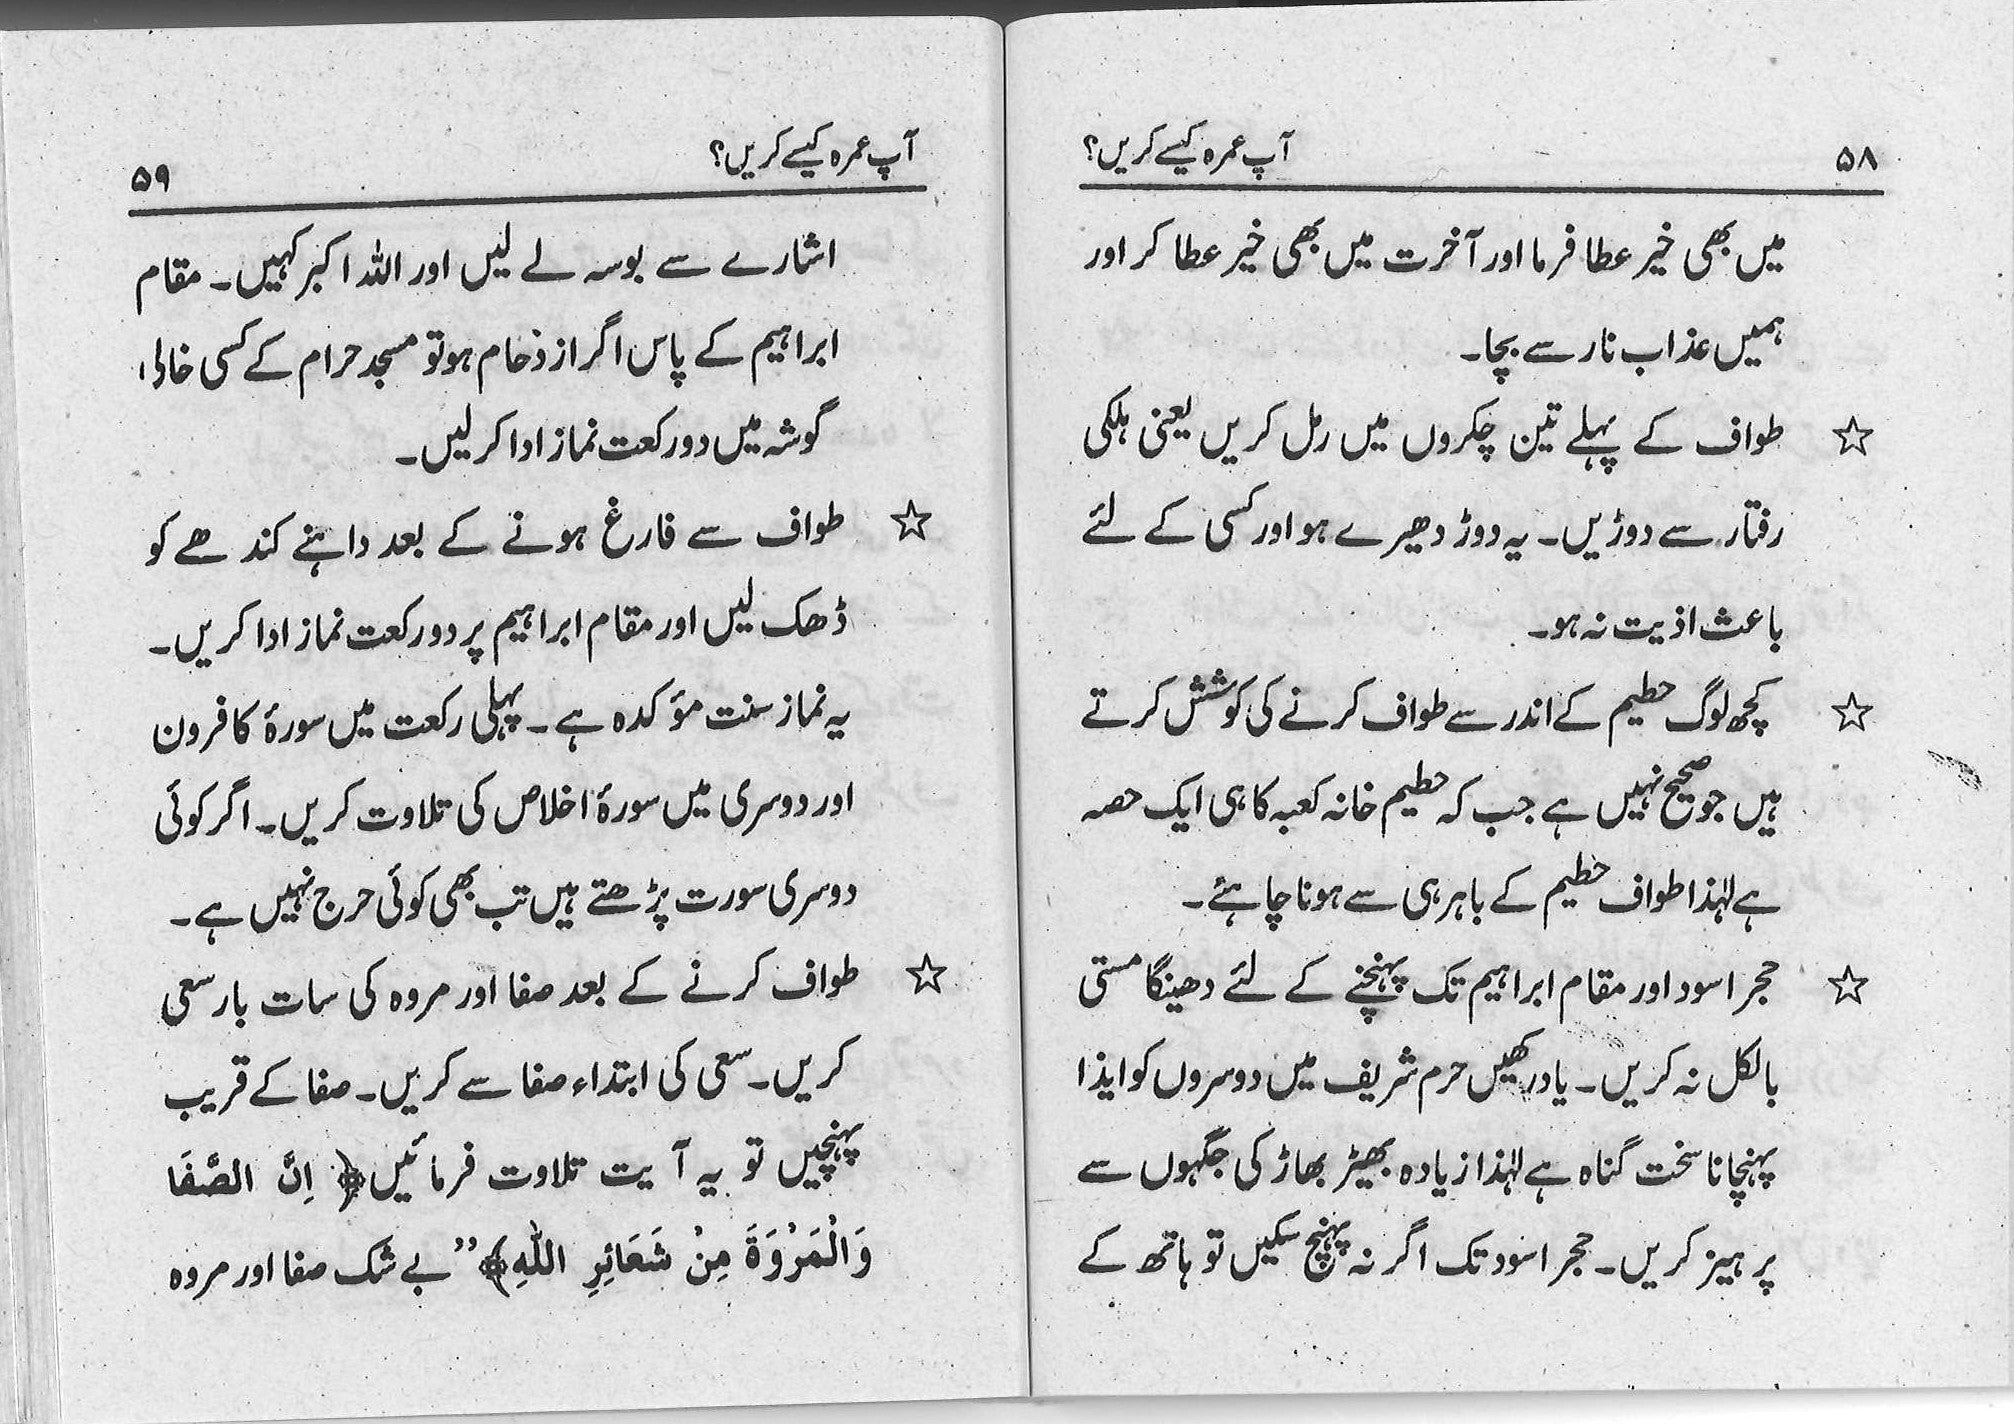 ۵۸ آپ عمرہ کیسے کریں؟
میں بھی خیر عطا فرما اور آخرت میں بھی خیر عطا کر اور
ہمیں عذاب نار سے بچا۔
☆ طواف کے پہلے تین چکروں میں رمل کریں یعنی ہلکی
رفتار سے دوڑیں۔ یہ دوڑ دھیرے ہو اور کسی کے لئے
باعث اذیت نہ ہو۔
☆ کچھ لوگ حطیم کے اندر سے طواف کرنے کی کوشش کرتے
ہیں جو صحیح نہیں ہے جب کہ حطیم خانہ کعبہ کا ہی ایک حصہ
ہے لہٰذا طواف حطیم کے باہر ہی سے ہونا چاہئے۔
☆ حجر اسود اور مقام ابراہیم تک پہنچنے کے لئے دھینگا مستی
بالکل نہ کریں۔ یاد رکھیں حرم شریف میں دوسروں کو ایذا
پہنچانا سخت گناہ ہے لہٰذا زیادہ بھیڑ بھاڑ کی جگہوں سے
پرہیز کریں۔ حجر اسود تک اگر نہ پہنچ سکیں تو ہاتھ کے
آپ عمرہ کیسے کریں؟ ۵۹
اشارے سے بوسہ لے لیں اور اللہ اکبر کہیں۔ مقام
ابراہیم کے پاس اگر ازدحام ہو تو مسجد حرام کے کسی خالی
گوشہ میں دو رکعت نماز ادا کر لیں۔
☆ طواف سے فارغ ہونے کے بعد داہنے کندھے کو
ڈھک لیں اور مقام ابراہیم پر دو رکعت نماز ادا کریں۔
یہ نماز سنت مؤکدہ ہے۔ پہلی رکعت میں سورۂ کافرون
اور دوسری میں سورۂ اخلاص کی تلاوت کریں۔ اگر کوئی
دوسری سورت پڑھتے ہیں تب بھی کوئی حرج نہیں ہے۔
☆ طواف کرنے کے بعد صفا اور مروہ کی سات بار سعی
کریں۔ سعی کی ابتداء صفا سے کریں۔ صفا کے قریب
پہنچیں تو یہ آیت تلاوت فرمائیں ﴿اِنَّ الصَّفَا
وَالْمَرْوَةَ مِنْ شَعَائِرِ اللّٰهِ﴾ ”بے شک صفا اور مروہ